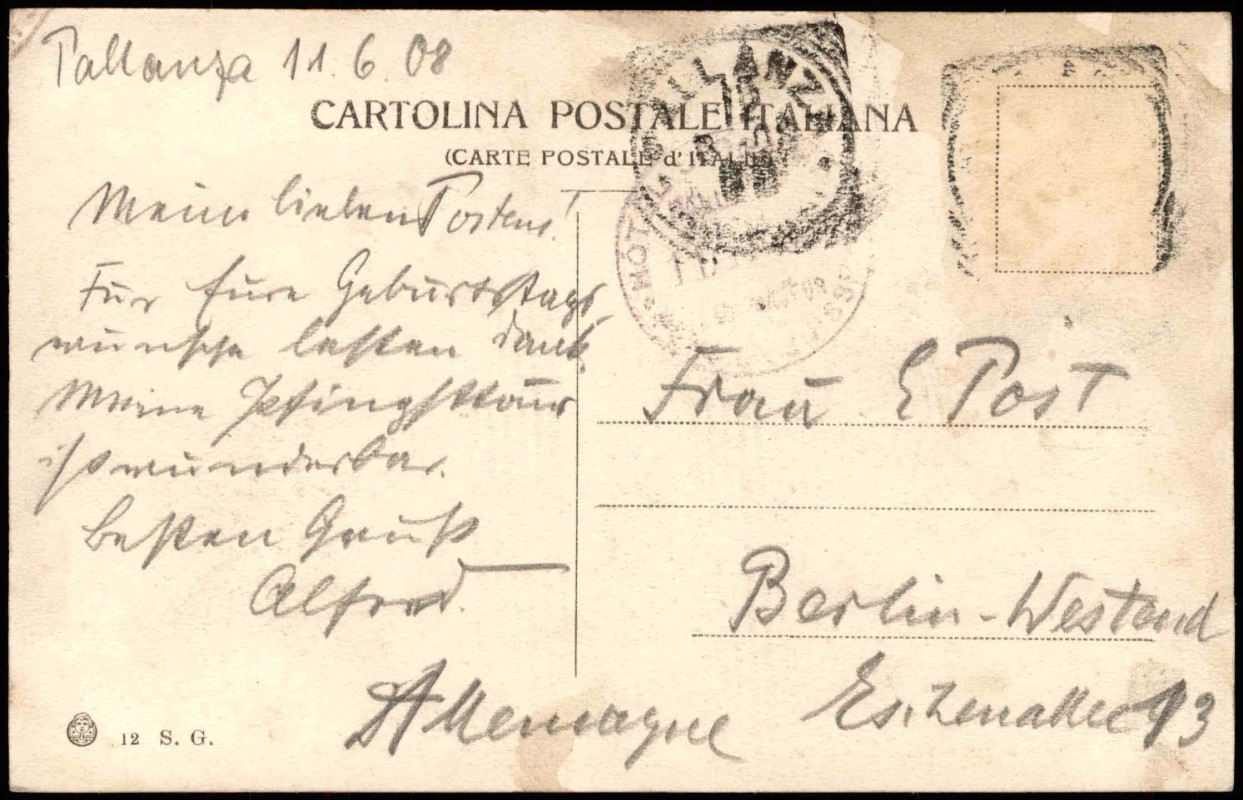 Pallanza 11.6.08
CARTOLINA POSTALE ITALIANA
(CARTE POSTALE d'ITALIE)
PALLANZA
Meine lieben Postens!
Für Eure Geburtstags-
wünsche besten Dank.
Meine Pfingsttour
ist wunderbar.
Besten Gruß
Alfred.
Frau E Post
Berlin-Westend
Eschenallee 13
Allemagne
12 S. G.